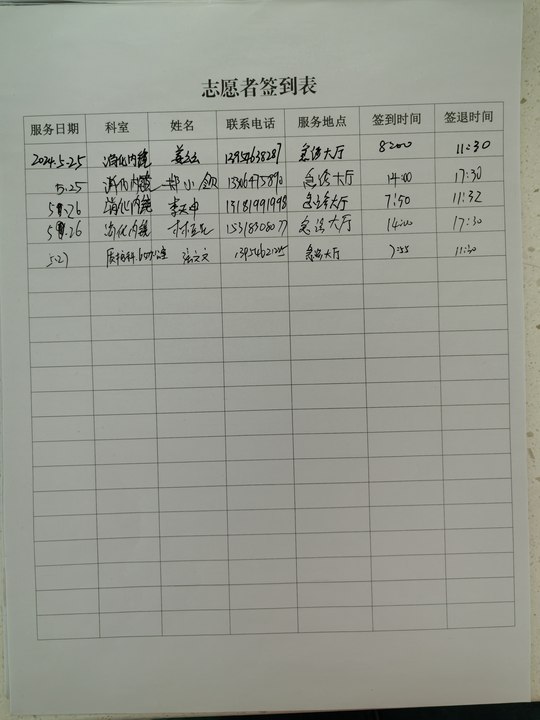 志愿者签到表
服务日期 科室 姓名 联系电话 服务地点 签到时间 签退时间
2024.5.25 消化内镜 姜 13954638287 急诊大厅 8:00 11:30
5.25 消化内镜 郑小 急诊大厅 14:00 17:30
5.26 消化内镜 李 13181991998 急诊大厅 7:50 11:32
5.26 消化内镜 林 15318308077 急诊大厅 14:00 17:30
5.27 办公室 张文文 急诊大厅 7:55 11:30